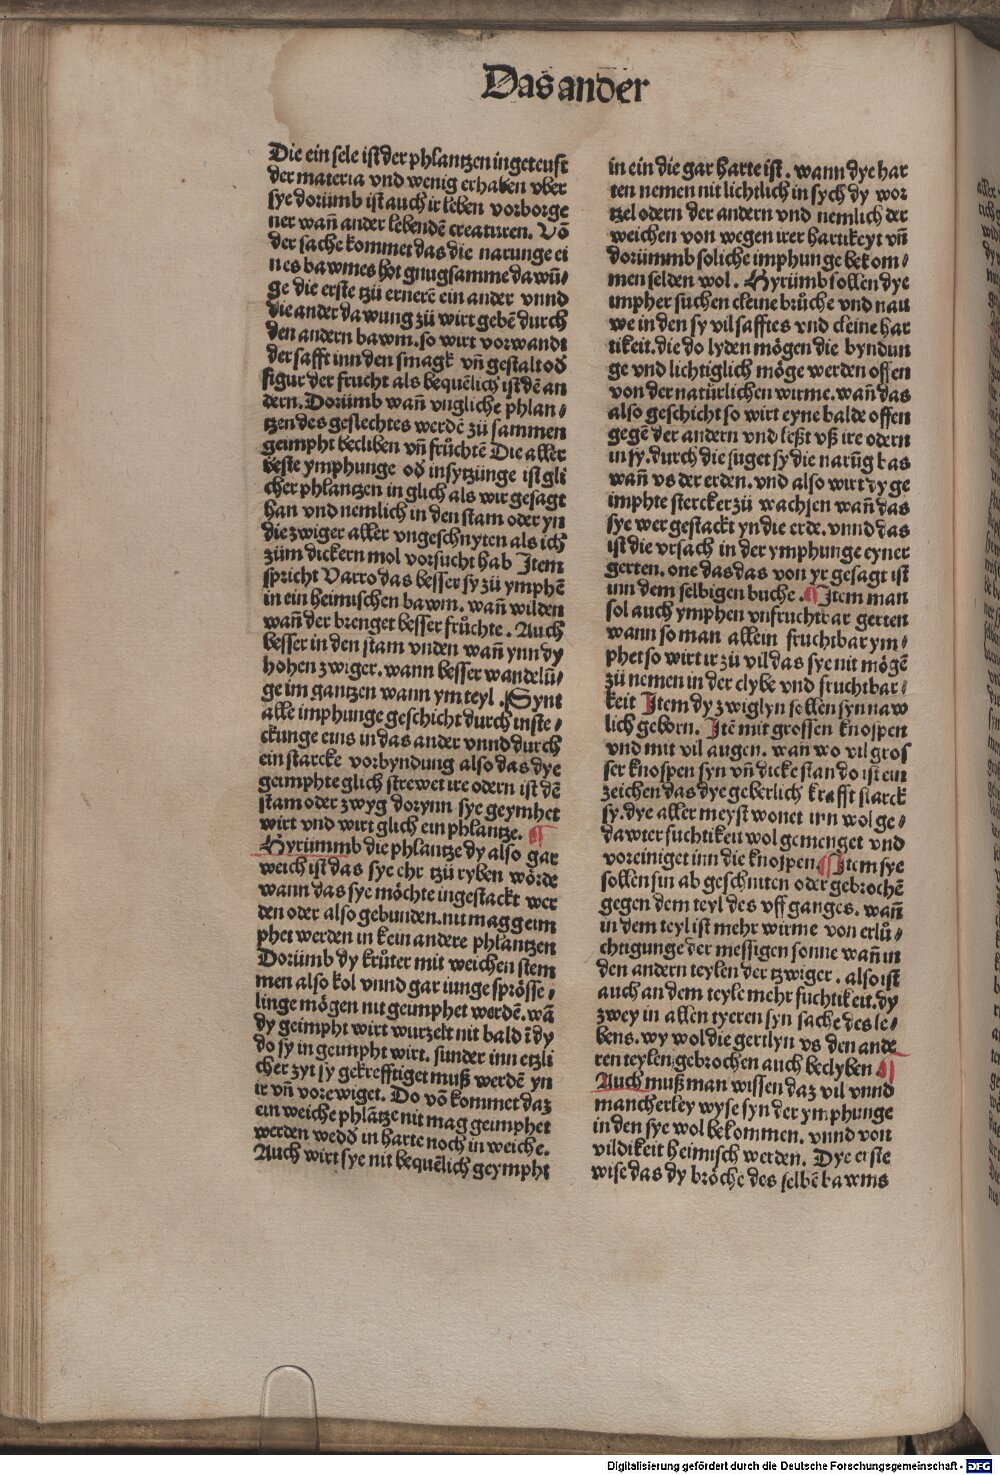 Das ander
Die ein sele ist der phlantzen ingeteuft
der materia vnd wenig erhaben vber
sye dorümb ist auch ir leben vorborge
ner wañ ander lebendē creaturen. Vō
der sache kommet das die narunge ei
nes bawmes hot gnugsamme dawū⸗
ge die erste tzü ernerē ein ander vnnd
die ander dawung zü wirt gebē durch
den andern bawm. so wirt vorwandt
der safft inn den smagk vñ gestalt od̄
figur der frucht als bequēlich ist dē an
dern. Dorümb wañ vngliche phlan⸗
tzen des geslechtes werdē zü sammen
geimpht becliben vñ früchtē Die aller
beste ymphunge od̄ insytzünge ist gli
cher phlantzen in glich als wir gesagt
han vnd nemlich in den stam oder yn
die zwiger aller vngeschnyten als ich
züm dickern mol vorsucht hab Item
spricht Varro das besser sy zü ymphē
in ein heimischen bawm. wañ wilden
wañ der brenget besser früchte. Auch
besser in den stam vnden wañ ynn dy
hohen zwiger. wann besser wandelū⸗
ge im gantzen wann ym teyl. Synt
alle imphunge geschicht durch inste⸗
ckunge eins in das ander vnnd durch
ein starcke vorbyndung also das dye
geimphte glich strewet ire odern ist dē
stam oder zwyg dorynn sye geymhet
wirt vnd wirt glich ein phlantze. ¶
Hyrümmb die phlantze dy also gar
weich ist das sye ehr tzü ryben wörde
wann das sye möchte ingestackt wer
den oder also gebunden. nit mag geim
phet werden in kein andere phlantzen
Dorümb dy krüter mit weichen stem
men also kol vnnd gar iunge sprösse⸗
linge mögen nit geimphet werdē. wā
dy geimpht wirt wurzelt nit bald ī dy
do sy in geimpht wirt. sunder inn etzli
cher zyt sy gekrefftiget muß werdē yn
ir vñ vorewiget. Do vō kommet daz
ein weiche phlātze nit mag geimphet
werden wedd̄ in harte noch in weiche.
Auch wirt sye nit bequēlich geympht
in ein die gar harte ist. wann dye har
ten nemen nit lichtlich in sych dy wor
tzel odern der andern vnd nemlich der
weichen von wegen irer hartikeyt vñ
dorümmb soliche imphunge bekom⸗
men selden wol. Hyrümb sollen dye
impher suchen cleine brüche vnd nau
we in den sy vil safftes vnd cleine har
tikeit. die do lyden mögen die byndun
ge vnd lichtiglich möge werden offen
von der natürlichen wirme. wañ das
also geschicht so wirt eyne balde offen
gegē der andern vnd leßt vß ire odern
in sy. durch die suget sy die narūg bas
wañ vs der erden. vnd also wirt dy ge
imphte stercker zü wachsen wañ das
sye wer gestackt yn die erde. vnnd das
ist die vrsach in der ymphunge eyner
gerten. one das das von yr gesagt ist
inn dem selbigen buche. ¶ Item man
sol auch ymphen vnfruchtbar gerten
wann so man allein fruchtbar ym⸗
phet so wirt ir zü vil das sye nit mögē
zü nemen in der clybe vnd fruchtbar⸗
keit Item dy zwiglyn sollen syn naw
lich geborn. Itē mit grossen knospen
vnd mit vil augen. wañ wo vil gros
ser knospen syn vñ dicke stan do ist ein
zeichen das dye geberlich krafft starck
sy. dye aller meyst wonet inn wol ge⸗
dawter fuchtikeit wol gemenget vnd
voreiniget inn die knospen ¶ Item sye
sollen sin ab geschniten oder gebrochē
gegen dem teyl des vff ganges. wañ
in dem teyl ist mehr wirme von erlü⸗
chtigunge der messigen sonne wañ in
den andern teylen der tzwiger. also ist
auch an dem teyle mehr fuchtikeit. dy
zwey in allen tyeren syn sache des le⸗
bens. wy wol die gertlyn vs den ande
ren teylen gebrochen auch beclyben ¶
Auch muß man wissen daz vil vnnd
mancherley wyse syn der ymphunge
in den sye wol bekommen. vnnd von
vildikeit heimisch werden. Dye erste
wise das dy bröche des selbē bawms
Digitalisierung gefördert durch die Deutsche Forschungsgemeinschaft - DFG